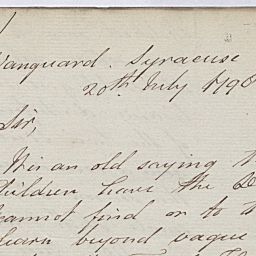 Vanguard. Syracuse
20th July 179
Sir,
It is an old saying
Children have the
cannot find or to
learn beyond vague